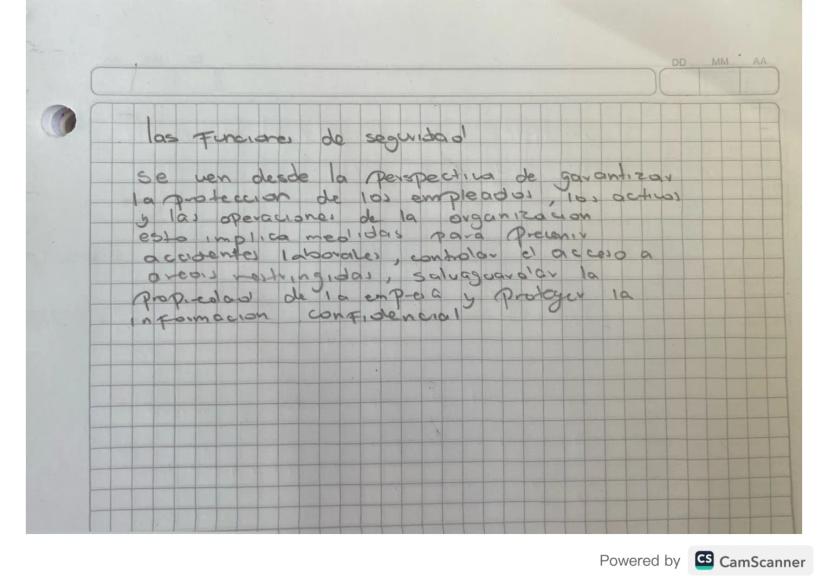 DD MM AA
las Funciones de seguridad
se ven desde la perspectiva de garantizar
la proteccion de los empleados, los activos
y las operaciones de la organizacion
esto implica medidas para Prevenir
accidentes laborales, controlar el acceso a
areas restringidas, salvaguardar la
propiedad de la empresa y proteger la
informacion confidencial
Powered by CS CamScanner